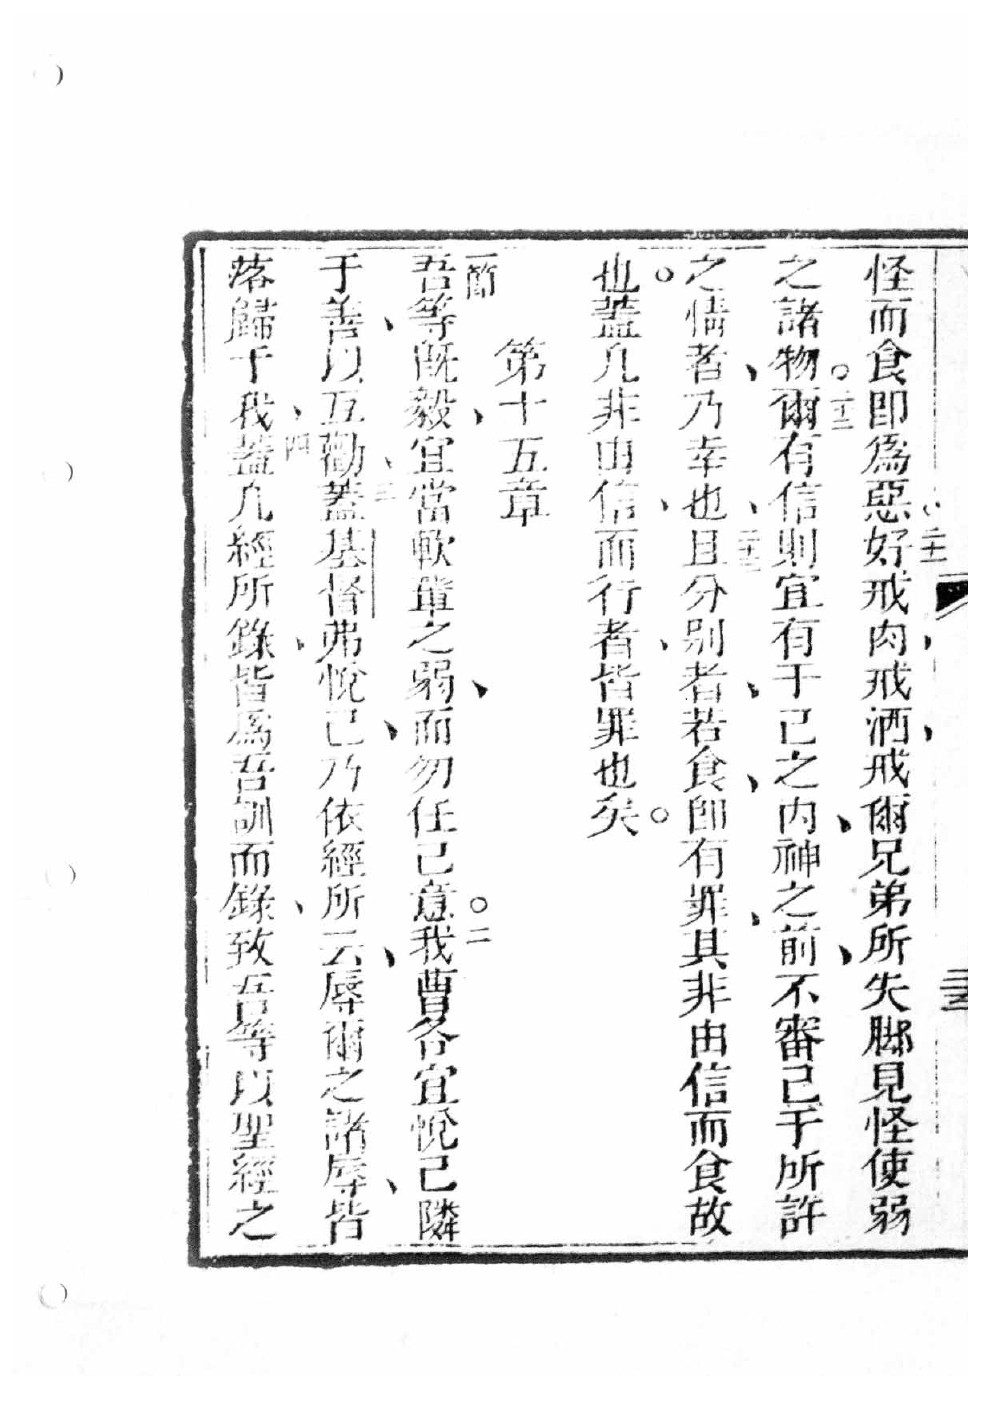 怪而食卽爲惡。二十一好戒肉、戒酒、戒爾兄弟所失脚見怪使弱
之諸物。二十二爾有信則宜有于己之內、神之前、不審己于所許
之情者、乃幸也、二十三且分别者、若食、卽有罪、其非由信而食故
也。蓋凡非由信、而行者、皆罪也矣。
第十五章
一節吾等旣毅、宜當軟軰之弱、而勿任己意。二我曹各宜悅己隣
于善、以互勸、三蓋基督弗悅己、乃依經所云、辱爾之諸辱、皆
落歸于我、四蓋凡經所錄、皆爲吾訓而錄、致吾等以聖經之